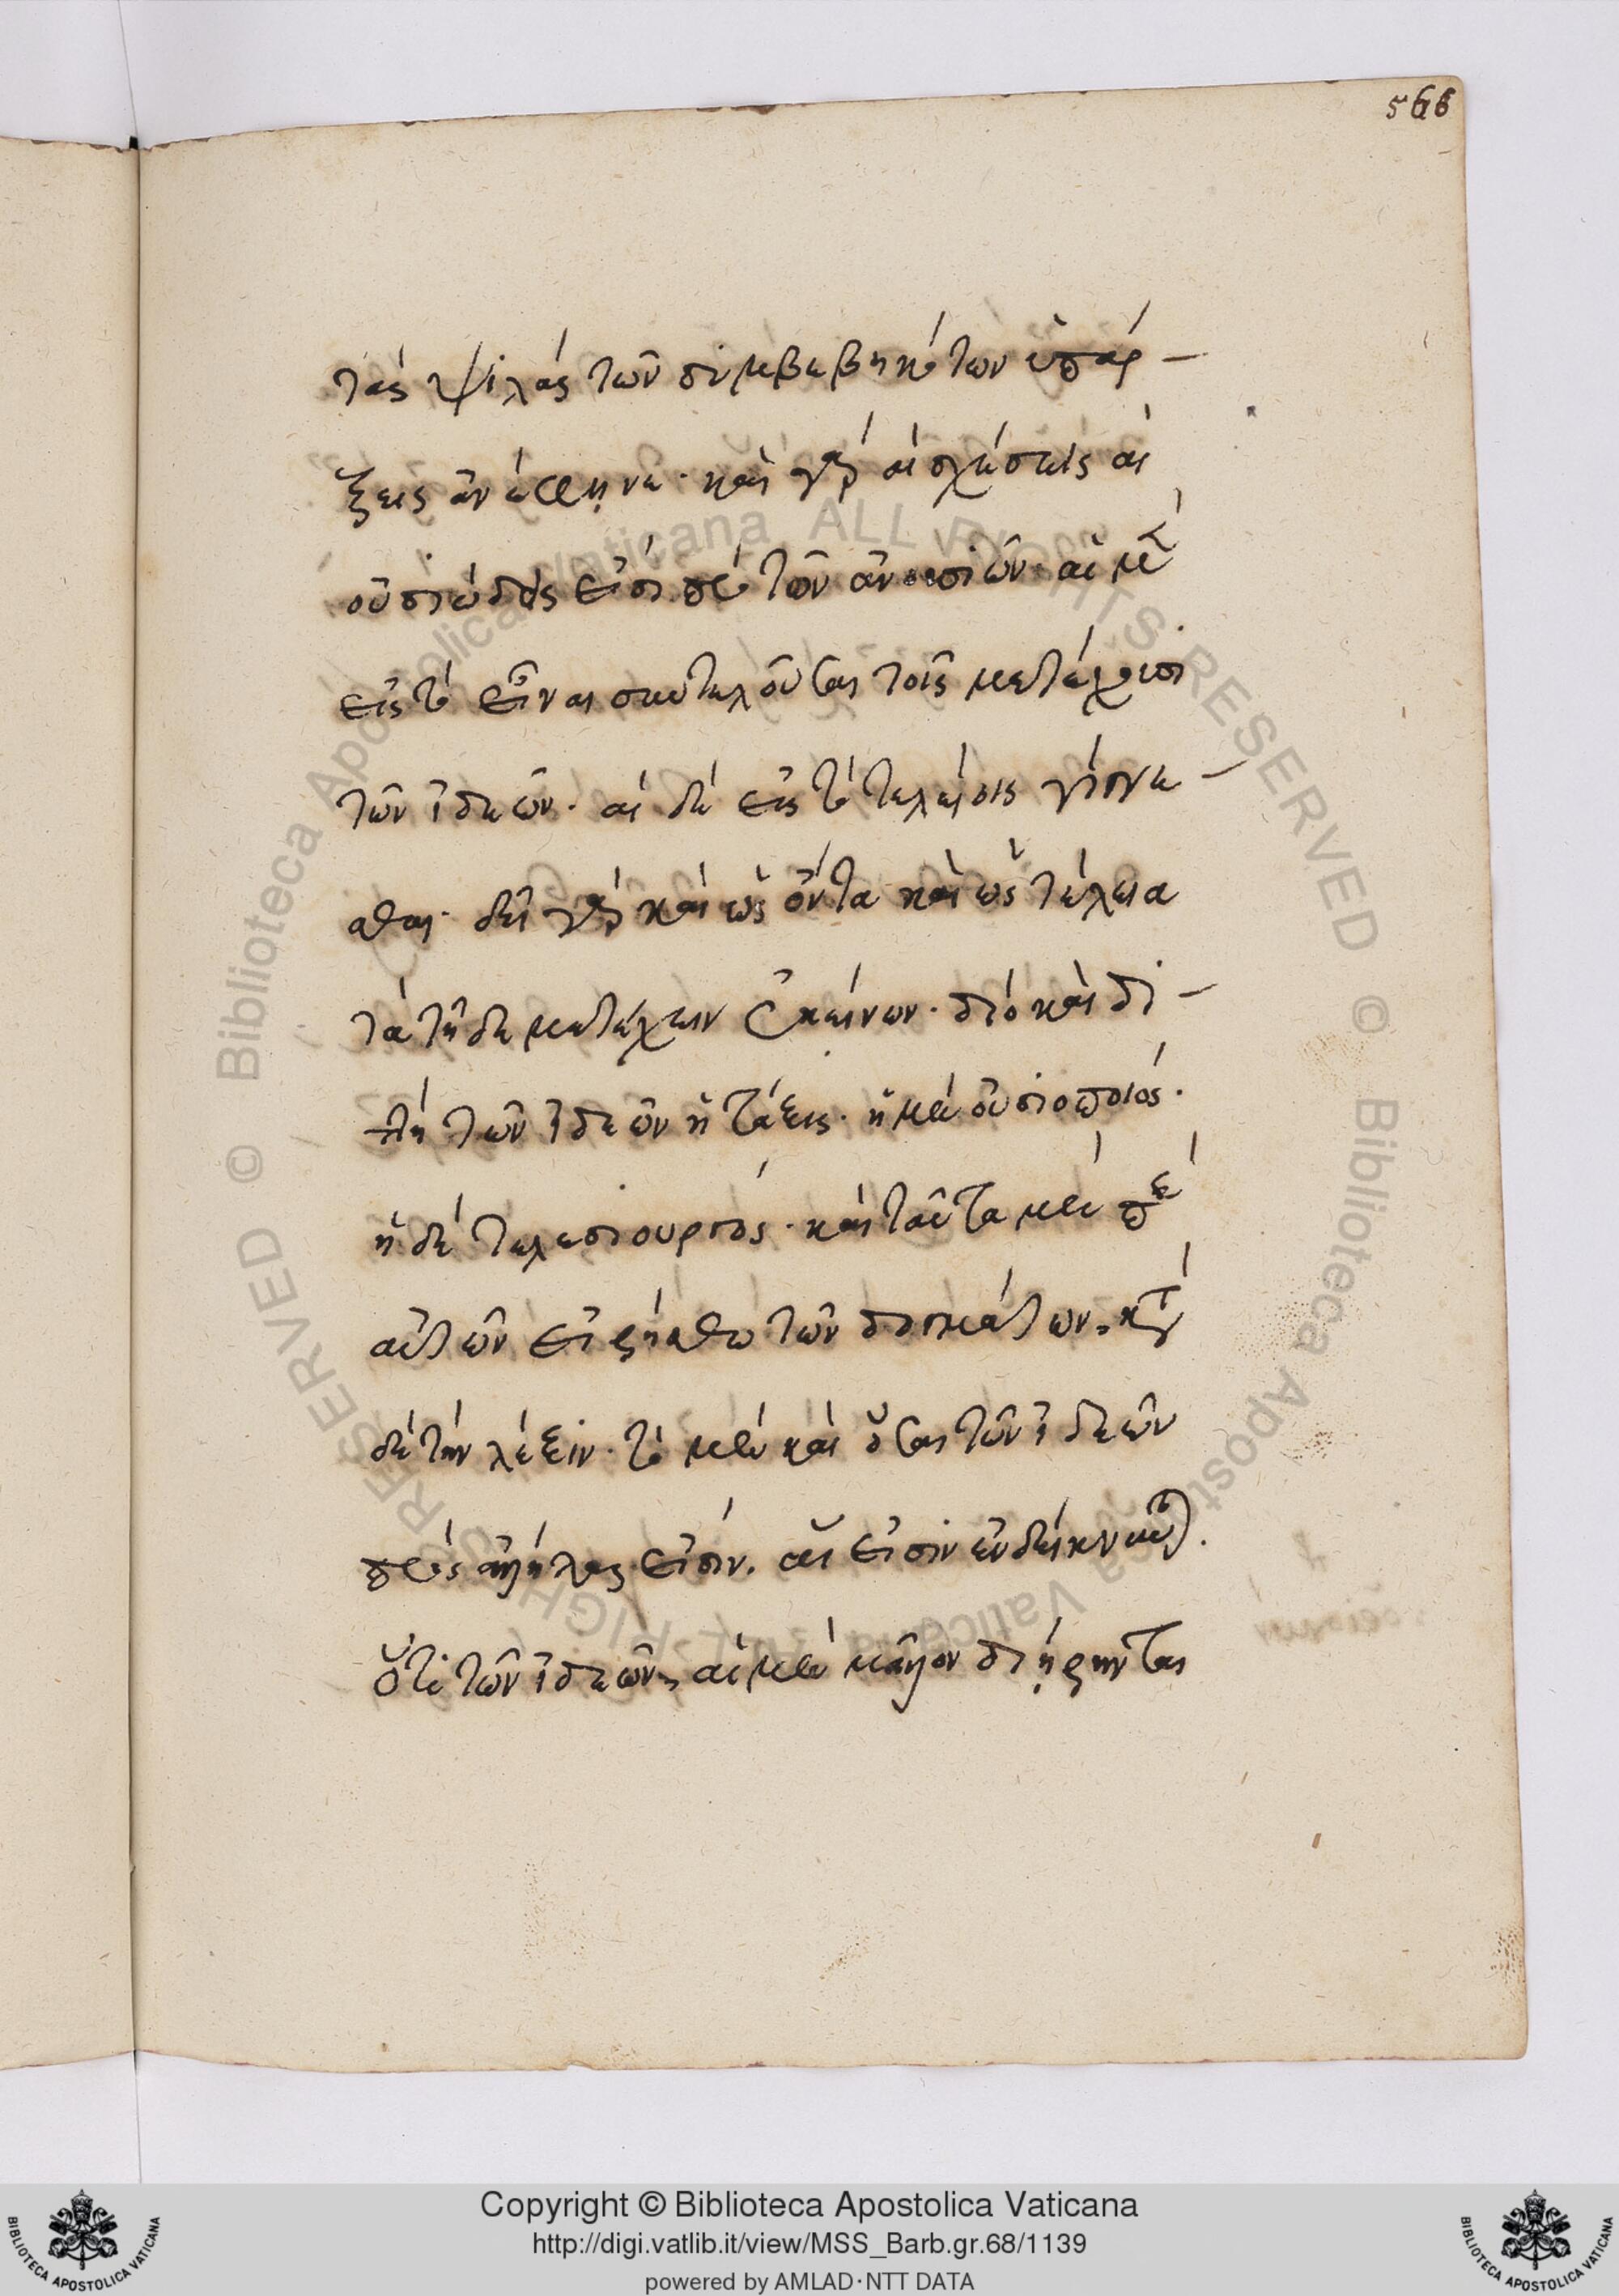 566
τὰς ψιλὰς τῶν συμβεβηκότων ὑπάρ-
ξεις ἀνέφηνε· καὶ γὰρ αἱ σχέσεις αἱ
οὐσιώδεις εἰσὶ πρὸ τῶν ἀνουσίων· αἱ μὲν
εἰς τὸ εἶναι συντελοῦσαι τοῖς μετέχουσι
τῶν ἰδεῶν· αἱ δὲ εἰς τὸ τελείοις γίγνε-
σθαι· δεῖ γὰρ καὶ ὡς ὄντα καὶ ὡς τέλεια
τὰ τῇδε μετέχειν ἐκείνων· διὸ καὶ δι-
ττὴ τῶν ἰδεῶν ἡ τάξις· ἡ μὲν οὐσιοποιὸς·
ἡ δὲ τελεσιουργὸς· καὶ ταῦτα μὲν περὶ
αὐτῶν εἰρήσθω τῶν δογμάτων, κατὰ
δὲ τὴν λέξιν· τὸ μὲν καὶ ὅσαι τῶν ἰδεῶν
πρὸς ἀλλήλας εἰσὶν, αἵ εἰσιν ἐνδείκνυται.
ὅτι τῶν ἰδεῶν, αἱ μὲν μᾶλλον διῄρηνται
Copyright © Biblioteca Apostolica Vaticana
http://digi.vatlib.it/view/MSS_Barb.gr.68/1139
powered by AMLAD·NTT DATA
BIBLIOTECA APOSTOLICA VATICANA
BIBLIOTECA APOSTOLICA VATICANA
© Biblioteca Apostolica Vaticana ALL RIGHTS RESERVED © Biblioteca Apostolica Vaticana ALL RIGHTS RESERVED